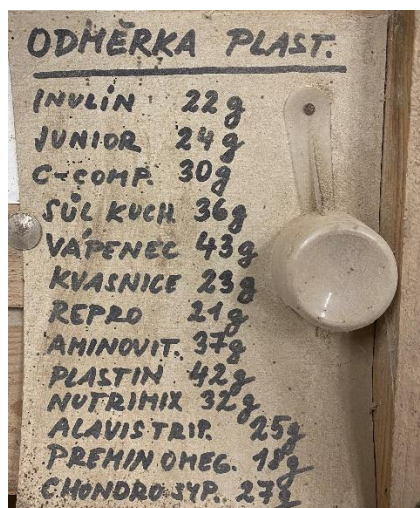 ODMĚRKA PLAST.
INULÍN 22g
JUNIOR 24g
C-COMP. 30g
SŮL KUCH. 36g
VÁPENEC 43g
KVASNICE 23g
REPRO 21g
AMINOVIT. 37g
PLASTIN 42g
NUTRIMIX 32g
ALAVIS TRIP. 25g
PREMIN OMEG. 18g
CHONDRO SYP. 27g